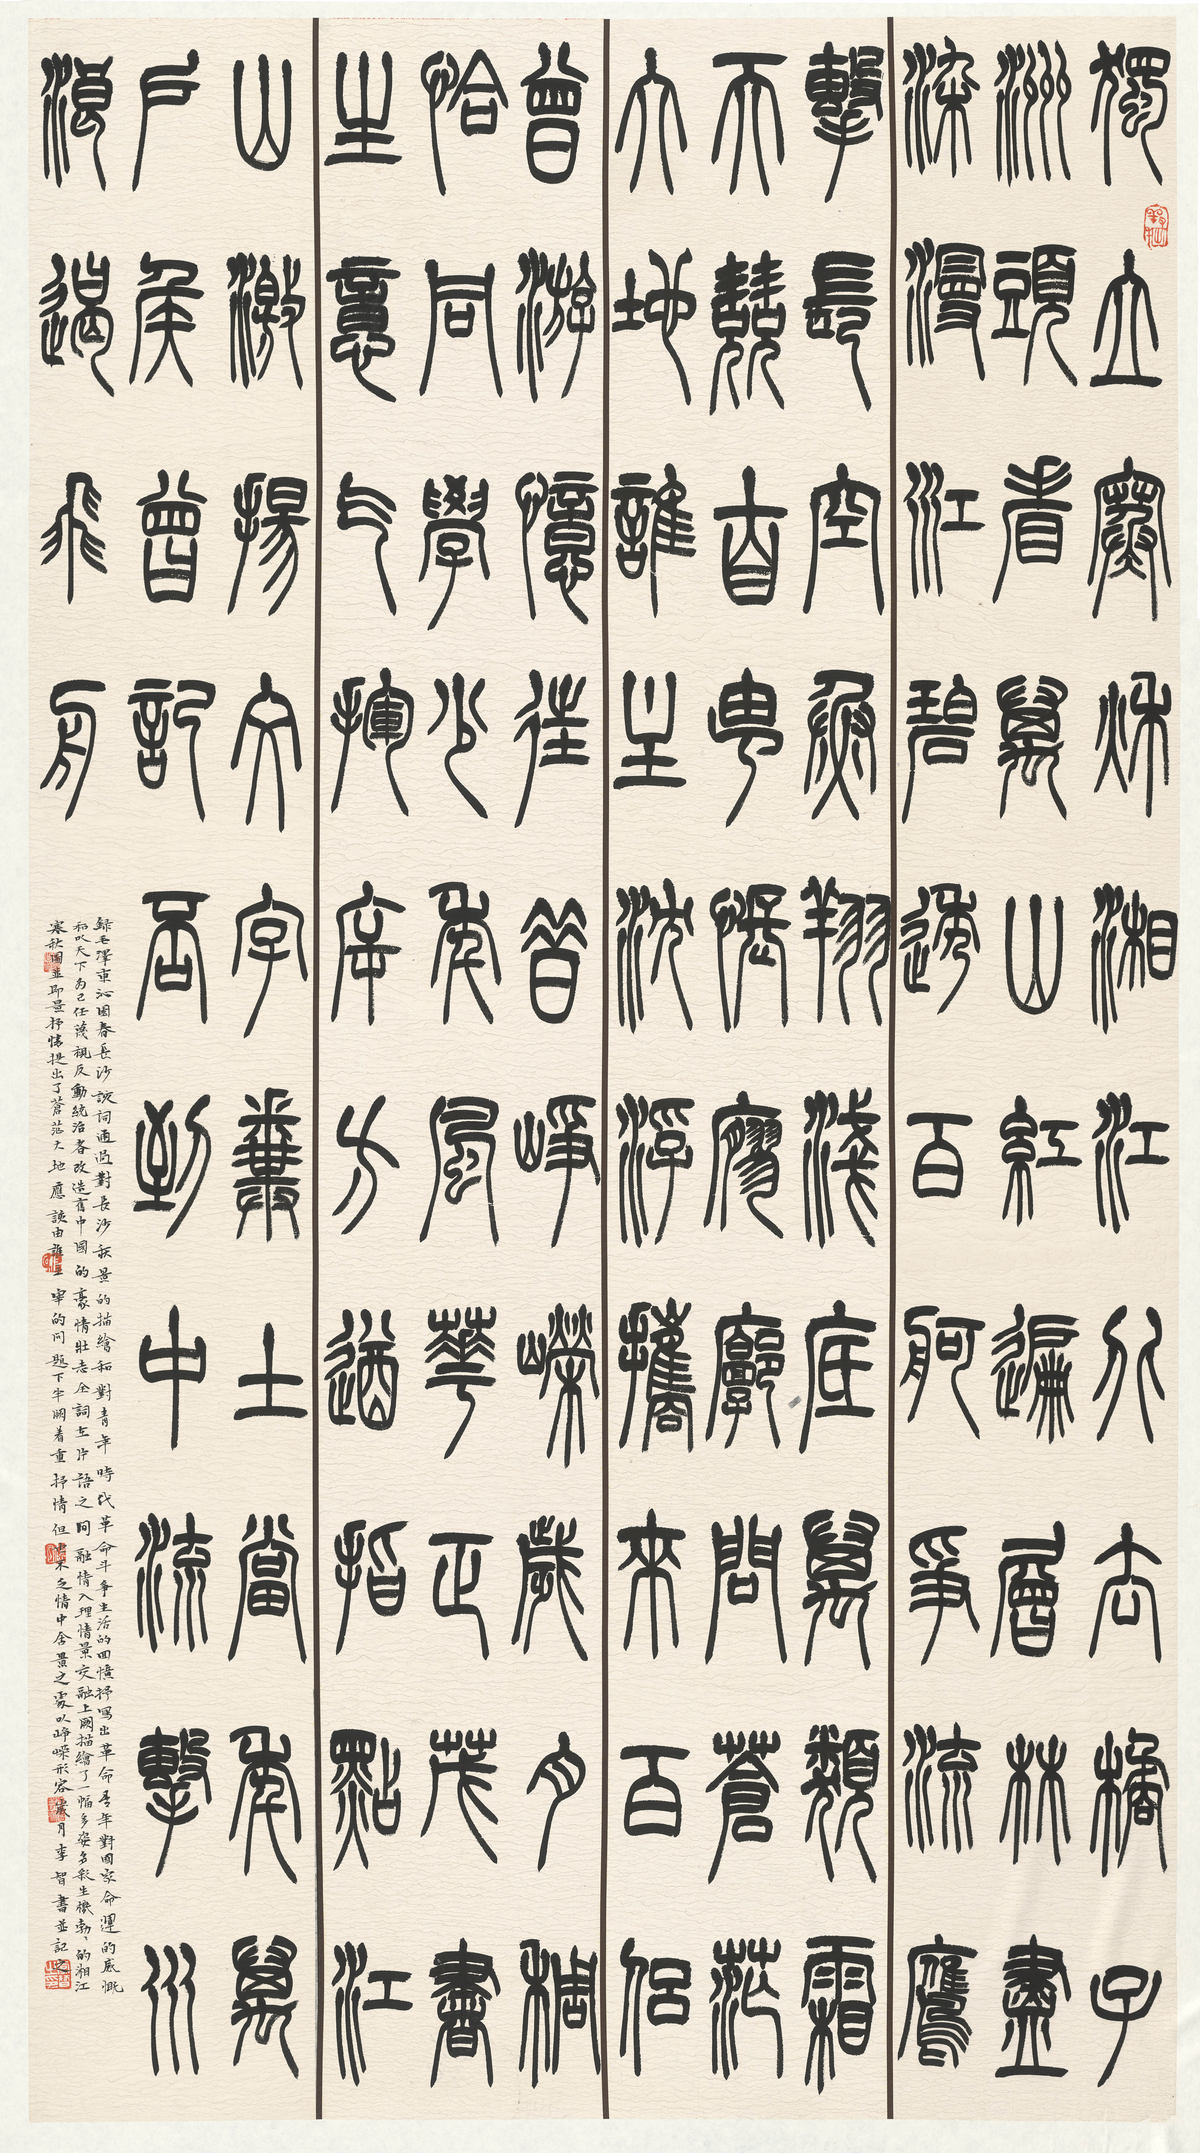 獨立寒秋湘江北去橘子
洲頭看萬山紅遍層林盡
染漫江碧透百舸爭流鷹
擊長空魚翔淺底萬類霜
天競自由悵寥廓問蒼茫
大地誰主沈浮攜來百侶
曾游憶往昔崢嶸歲月稠
恰同學少年風華正茂書
生意氣揮斥方遒指點江
山激揚文字糞土當年萬
戶侯曾記否到中流擊水
浪遏飛舟
錄毛澤東沁園春長沙該詞通過對長沙秋景的描繪和對青年時代革命斗爭生活的回憶抒寫出革命青年對國家命運的感慨
和以天下為己任蔑視反動統治者改造舊中國的豪情壯志全詞在片語之間融情入理情景交融上闕描繪了一幅多姿多彩生機勃勃的湘江
寒秋圖並即景抒情提出了蒼茫大地應該由誰主宰的問題下半闕着重抒情但未乏情中含景之處以崢嶸形容歲月李智書並記之